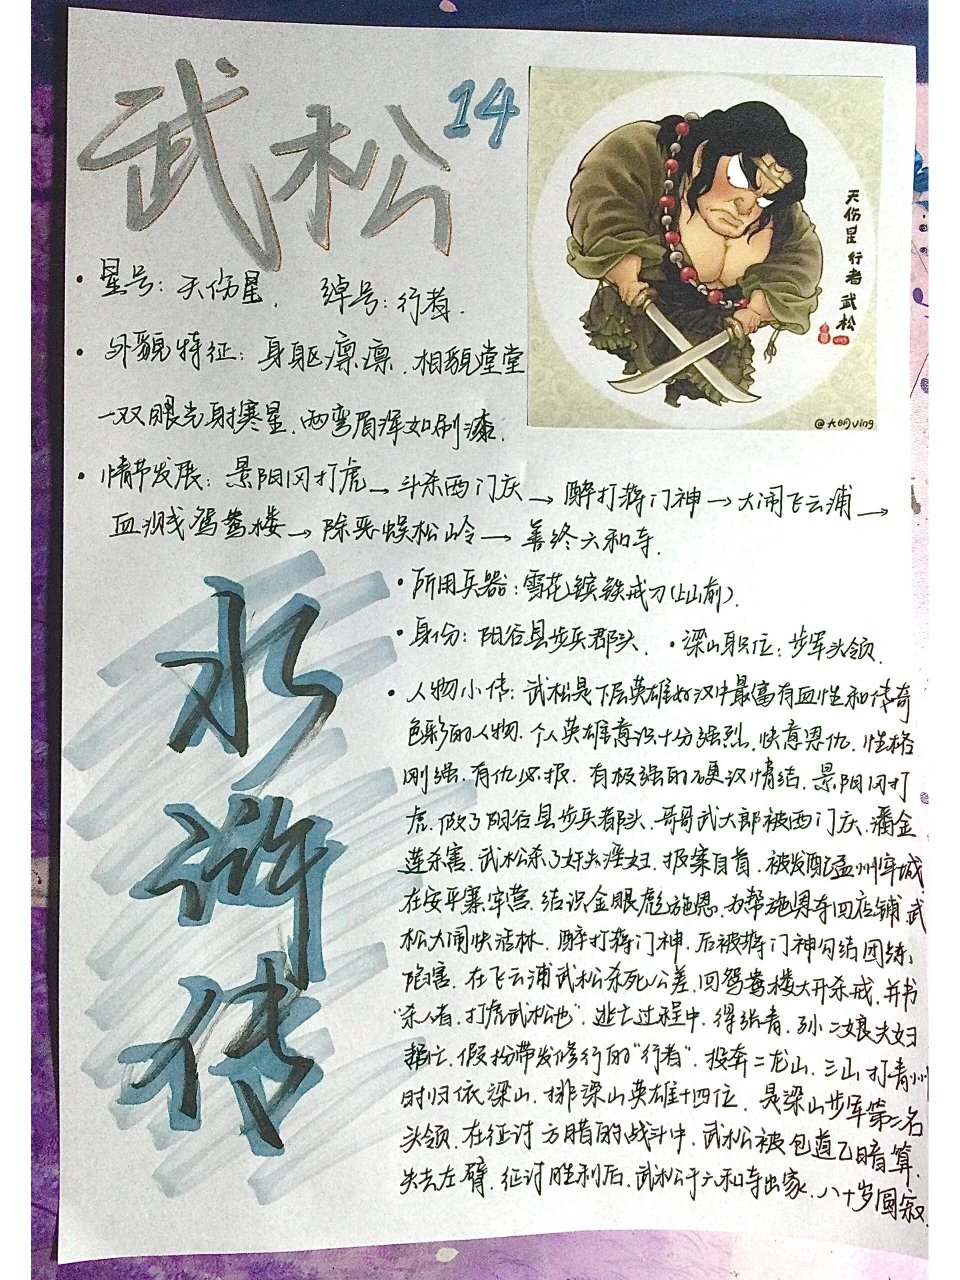 武松
14
天伤星行者武松
@大明ving
·星号:天伤星. 绰号:行者.
·外貌特征:身躯凛凛.相貌堂堂
一双眼光射寒星.两弯眉浑如刷漆.
·情节发展:景阳冈打虎→斗杀西门庆→醉打蒋门神→大闹飞云浦→
血溅鸳鸯楼→除恶蜈松岭→善终六和寺.
水浒传
·所用兵器:雪花镔铁戒刀(上山前).
·身份:阳谷县步兵都头. ·梁山职位:步军头领.
·人物小传:武松是下层英雄好汉中最富有血性和传奇
色彩的人物.个人英雄意识十分强烈.快意恩仇.性格
刚强.有仇必报.有极强的硬汉情结.景阳冈打
虎.做了阳谷县步兵都头.哥哥武大郎被西门庆.潘金
莲杀害.武松杀了奸夫淫妇.报案自首.被发配孟州牢城
在安平寨牢营.结识金眼彪施恩.为帮施恩夺回店铺武
松大闹快活林.醉打蒋门神.后被蒋门神勾结团练、
陷害.在飞云浦武松杀死公差.回鸳鸯楼大开杀戒.并书
"杀人者.打虎武松也".逃亡过程中.得张青.孙二娘夫妇
帮忙.假扮带发修行的"行者".投奔二龙山.三山打青州
时归依梁山.排梁山英雄十四位.是梁山步军第二名
头领.在征讨方腊的战斗中.武松被包道乙暗算.
失去左臂.征讨胜利后.武松于六和寺出家.八十岁圆寂.